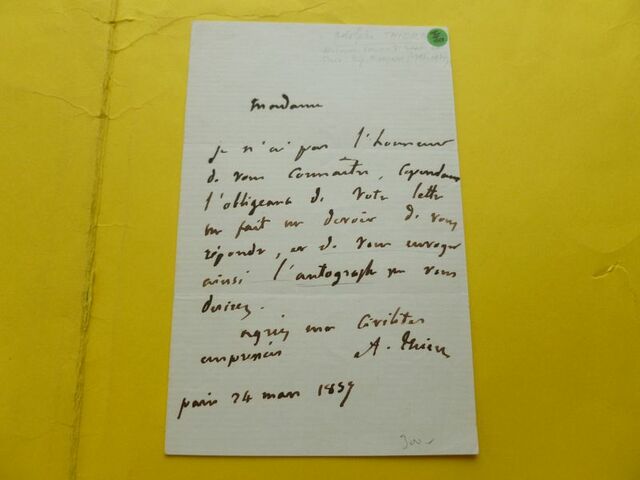 Adolphe THIERS
Madame
je n'ai pas l'honneur
de vous connaitre, cependant
l'obligeance de votre lettre
me fait un devoir de vous
répondre, et de vous envoyer
ainsi l'autographe que vous
desirez.
agréez mes civilités
empressées A. Thiers
paris 24 mars 1859
300